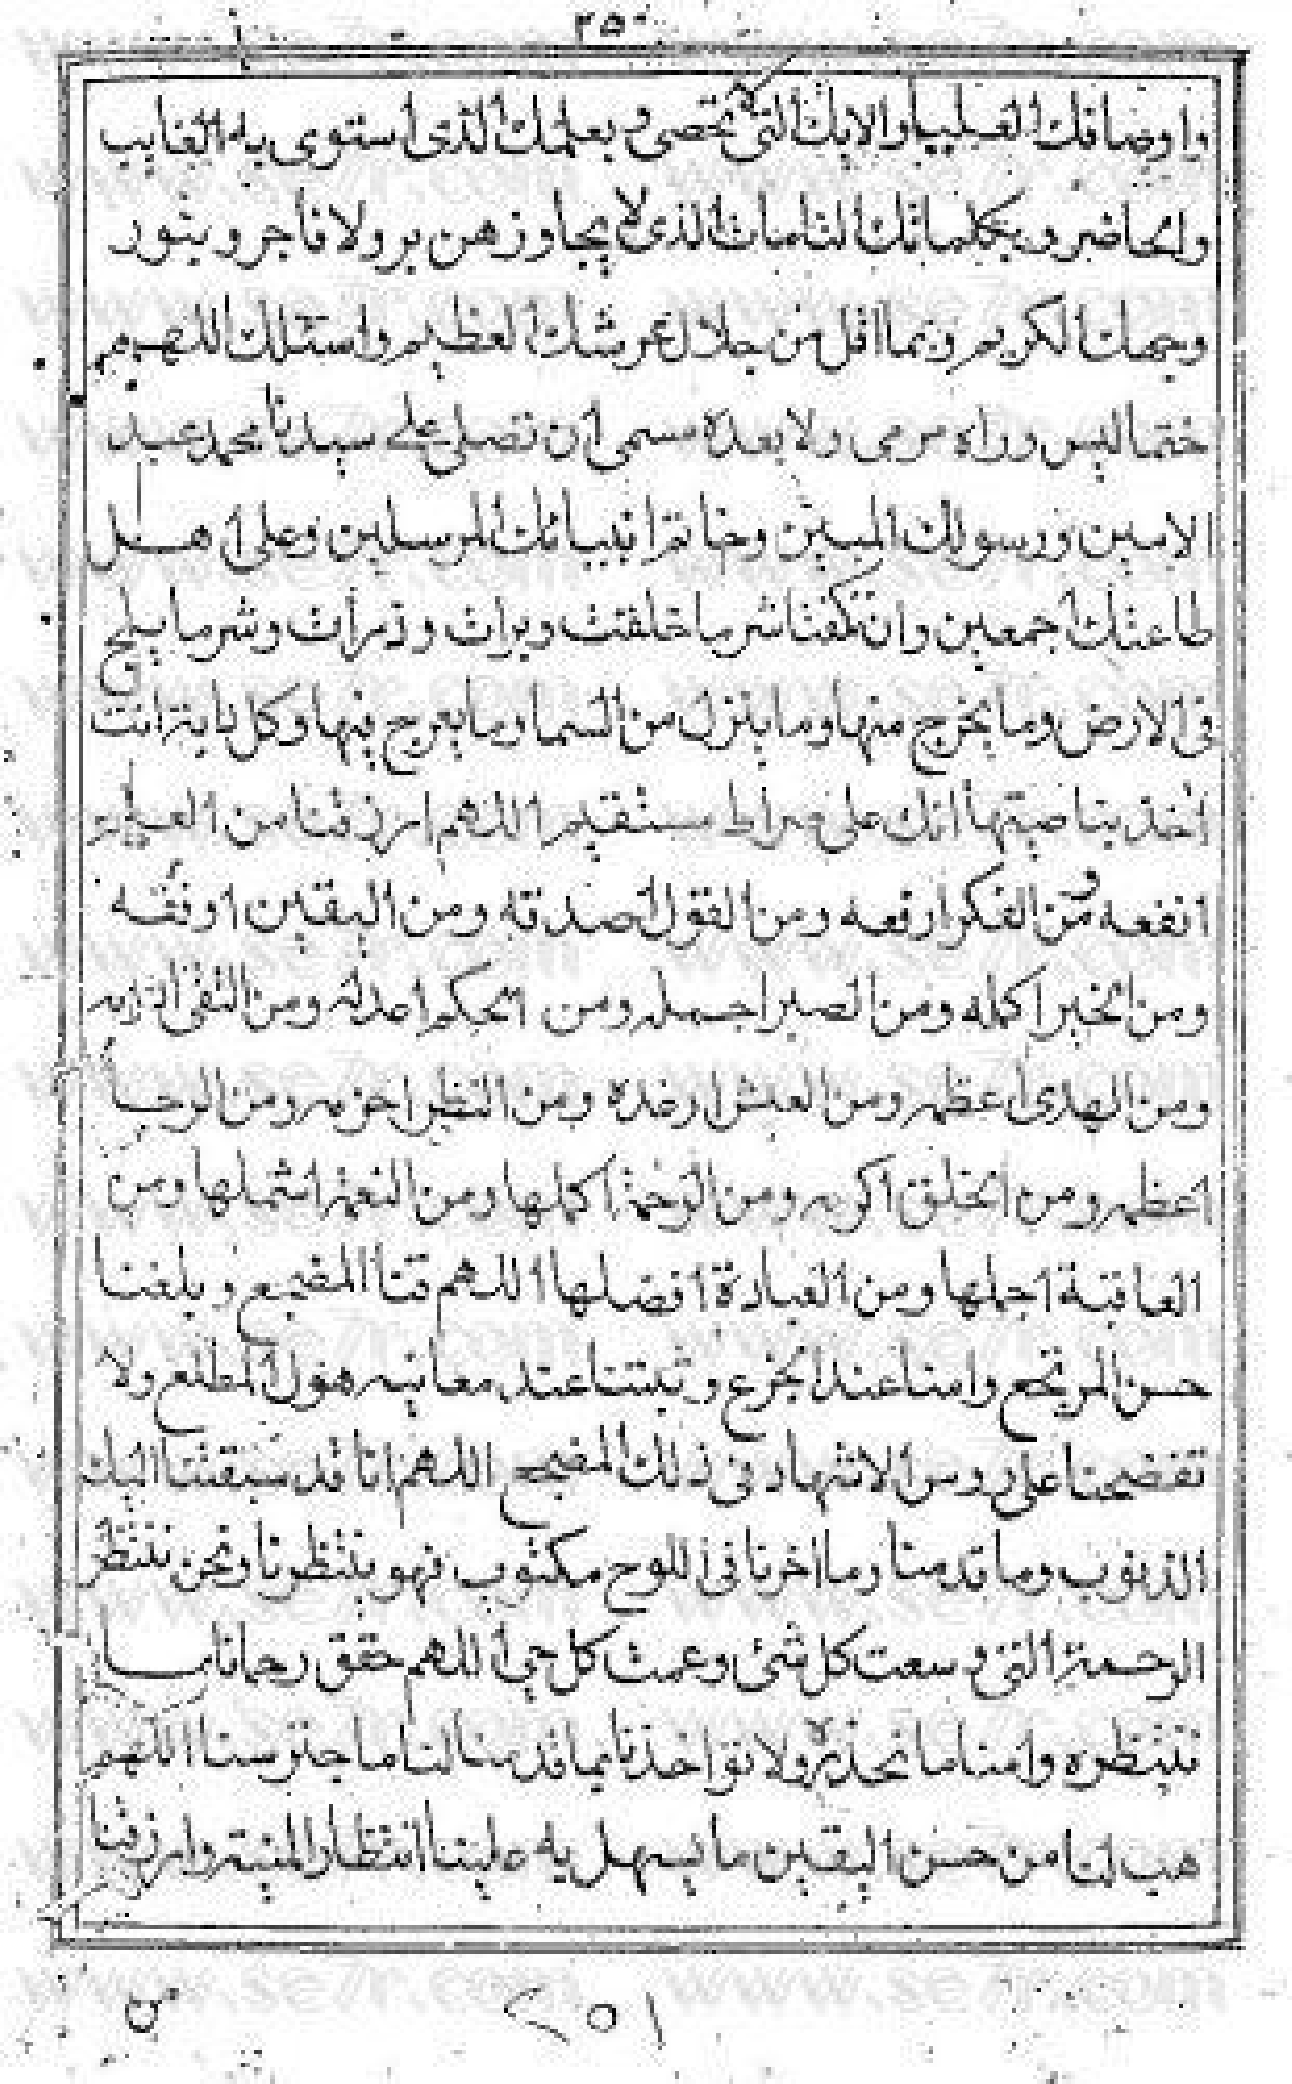 ٢٥٠
واوصافك العليا والايك التي لا تحصى وبعلمك الذى استوى به الغايب
والحاضر وبكلماتك التامات الذى لا يجاوزهن بر ولا فاجر وبنور
وجهك الكريم وبما اقل من جلال عرشك العظيم واسئلك اللهم
ختما ليس وراه مرمى ولا بعده مسمى ان تصلى على سيدنا محمد عبدك
الامين ورسولك المبين وخاتم انبيائك المرسلين وعلى اهل
طاعتك اجمعين وان تكفنا شر ما خلقت وبرات وذرات وشر ما يلج
فى الارض وما يخرج منها وما ينزل من السما وما يعرج فيها وكل دابة انت
اخذ بناصيتها انك على صراط مستقيم اللهم ارزقنا من العلم
انفعه ومن الفكر ارفعه ومن القول اصدقه ومن اليقين اوثقه
ومن الخير اكمله ومن الصبر اجمله ومن الحكم اعدله ومن التقى
ومن الهدى اعظمه ومن العيش ارغده ومن النظر احزمه ومن الرجا
اعظمه ومن الخلق اكرمه ومن الرحمة اكملها ومن النعمة اشملها ومن
العافية اجملها ومن العبادة افضلها اللهم قنا المضجع وبلغنا
حسن المرتجع وامنا عند الجزع وثبتنا عند معاينه هول المطلع ولا
تفضحنا على روس الاشهاد فى ذلك المضجع اللهم انا قد سبقتنا اليك
الذنوب وما قدمنا وما اخرنا فى اللوح مكتوب فهو ينتظرنا ونحن ننتظر
الرحمة التى وسعت كل شئ وعمت كل حى اللهم حقق رجانا بما
ننتظره وامنا ما نحذره ولا تواخذنا بما قدمنا لنا ما جترسنا اللهم
هب لنا من حسن اليقين ما يسهل به علينا انتظار المنية وارزقنا
من
٢٥١
www.se7r.com